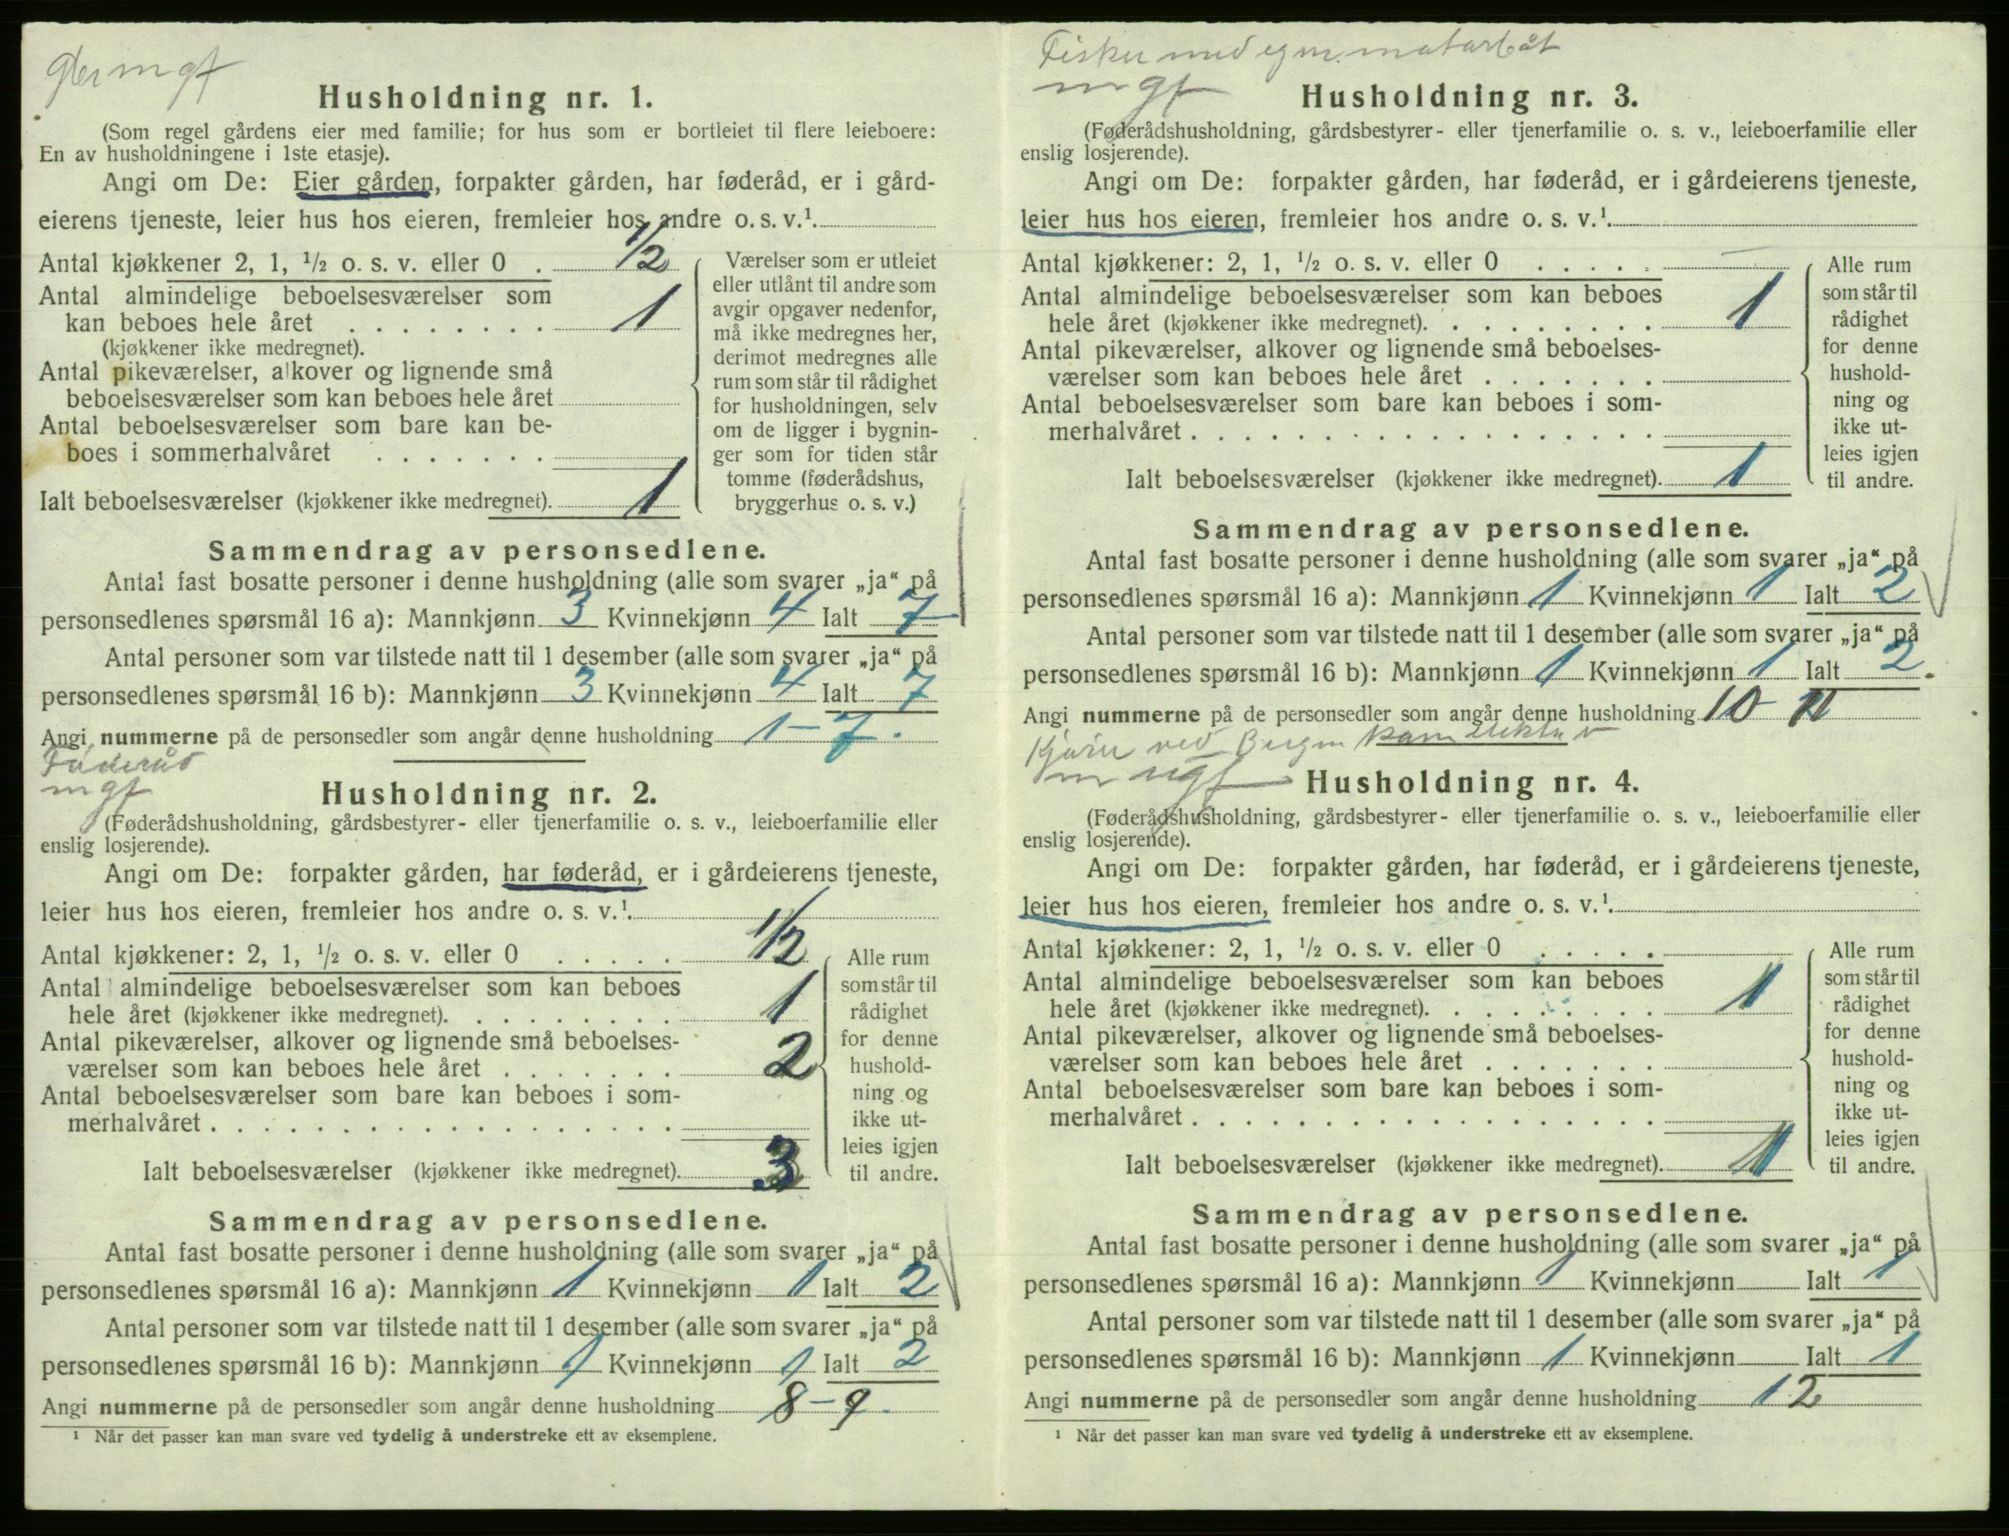 mgf
Husholdning nr. 1.
(Som regel gårdens eier med familie; for hus som er bortleiet til flere leieboere:
En av husholdningene i 1ste etasje).
Angi om De: Eier gården, forpakter gården, har føderåd, er i gård-
eierens tjeneste, leier hus hos eieren, fremleier hos andre o. s. v.¹.
Antal kjøkkener 2, 1, ½ o. s. v. eller 0 . 1/2
Antal almindelige beboelsesværelser som
kan beboes hele året . . . . . . . . 1
(kjøkkener ikke medregnet).
Antal pikeværelser, alkover og lignende små
beboelsesværelser som kan beboes hele året
Antal beboelsesværelser som bare kan be-
boes i sommerhalvåret . . . . . . .
Ialt beboelsesværelser (kjøkkener ikke medregnet). 1
Værelser som er utleiet
eller utlånt til andre som
avgir opgaver nedenfor,
må ikke medregnes her,
derimot medregnes alle
rum som står til rådighet
for husholdningen, selv
om de ligger i bygnin-
ger som for tiden står
tomme (føderådshus,
bryggerhus o. s. v.)
Sammendrag av personsedlene.
Antal fast bosatte personer i denne husholdning (alle som svarer „ja“ på
personsedlenes spørsmål 16 a): Mannkjønn 3 Kvinnekjønn 4 Ialt 7
Antal personer som var tilstede natt til 1 desember (alle som svarer „ja“ på
personsedlenes spørsmål 16 b): Mannkjønn 3 Kvinnekjønn 4 Ialt 7
Angi nummerne på de personsedler som angår denne husholdning 1-7.
Føderåd
mgf
Husholdning nr. 2.
(Føderådshusholdning, gårdsbestyrer- eller tjenerfamilie o. s. v., leieboerfamilie eller
enslig losjerende).
Angi om De: forpakter gården, har føderåd, er i gårdeierens tjeneste,
leier hus hos eieren, fremleier hos andre o. s. v.¹.
Antal kjøkkener: 2, 1, ½ o. s. v. eller 0 . . . . . 1/2
Antal almindelige beboelsesværelser som kan beboes
hele året (kjøkkener ikke medregnet). . . . . . . . . 1
Antal pikeværelser, alkover og lignende små beboelses-
værelser som kan beboes hele året . . . . . . . 2
Antal beboelsesværelser som bare kan beboes i som-
merhalvåret . . . . . . . . . . . . . . . . . .
Ialt beboelsesværelser (kjøkkener ikke medregnet). 3
Alle rum
som står til
rådighet
for denne
hushold-
ning og
ikke ut-
leies igjen
til andre.
Sammendrag av personsedlene.
Antal fast bosatte personer i denne husholdning (alle som svarer „ja“ på
personsedlenes spørsmål 16 a): Mannkjønn 1 Kvinnekjønn 1 Ialt 2
Antal personer som var tilstede natt til 1 desember (alle som svarer „ja“ på
personsedlenes spørsmål 16 b): Mannkjønn 1 Kvinnekjønn 1 Ialt 2
Angi nummerne på de personsedler som angår denne husholdning 8-9.
¹ Når det passer kan man svare ved tydelig å understreke ett av eksemplene.
Fisker med egen motorbåt
mgf
Husholdning nr. 3.
(Føderådshusholdning, gårdsbestyrer- eller tjenerfamilie o. s. v., leieboerfamilie eller
enslig losjerende).
Angi om De: forpakter gården, har føderåd, er i gårdeierens tjeneste,
leier hus hos eieren, fremleier hos andre o. s. v.¹.
Antal kjøkkener: 2, 1, ½ o. s. v. eller 0 . . . . . —
Antal almindelige beboelsesværelser som kan beboes
hele året (kjøkkener ikke medregnet). . . . . . . . . 1
Antal pikeværelser, alkover og lignende små beboelses-
værelser som kan beboes hele året . . . . . . .
Antal beboelsesværelser som bare kan beboes i som-
merhalvåret . . . . . . . . . . . . . . . . . .
Ialt beboelsesværelser (kjøkkener ikke medregnet). 1
Alle rum
som står til
rådighet
for denne
hushold-
ning og
ikke ut-
leies igjen
til andre.
Sammendrag av personsedlene.
Antal fast bosatte personer i denne husholdning (alle som svarer „ja“ på
personsedlenes spørsmål 16 a): Mannkjønn 1 Kvinnekjønn 1 Ialt 2
Antal personer som var tilstede natt til 1 desember (alle som svarer „ja“ på
personsedlenes spørsmål 16 b): Mannkjønn 1 Kvinnekjønn 1 Ialt 2.
Angi nummerne på de personsedler som angår denne husholdning 10-11
ved Bergen
Husholdning nr. 4.
(Føderådshusholdning, gårdsbestyrer- eller tjenerfamilie o. s. v., leieboerfamilie eller
enslig losjerende).
Angi om De: forpakter gården, har føderåd, er i gårdeierens tjeneste,
leier hus hos eieren, fremleier hos andre o. s. v.¹.
Antal kjøkkener: 2, 1, ½ o. s. v. eller 0 . . . . .
Antal almindelige beboelsesværelser som kan beboes
hele året (kjøkkener ikke medregnet). . . . . . . . . 1
Antal pikeværelser, alkover og lignende små beboelses-
værelser som kan beboes hele året . . . . . . .
Antal beboelsesværelser som bare kan beboes i som-
merhalvåret . . . . . . . . . . . . . . . . . .
Ialt beboelsesværelser (kjøkkener ikke medregnet). 1
Alle rum
som står til
rådighet
for denne
hushold-
ning og
ikke ut-
leies igjen
til andre.
Sammendrag av personsedlene.
Antal fast bosatte personer i denne husholdning (alle som svarer „ja“ på
personsedlenes spørsmål 16 a): Mannkjønn 1 Kvinnekjønn Ialt 1
Antal personer som var tilstede natt til 1 desember (alle som svarer „ja“ på
personsedlenes spørsmål 16 b): Mannkjønn 1 Kvinnekjønn Ialt 1
Angi nummerne på de personsedler som angår denne husholdning 12
¹ Når det passer kan man svare ved tydelig å understreke ett av eksemplene.